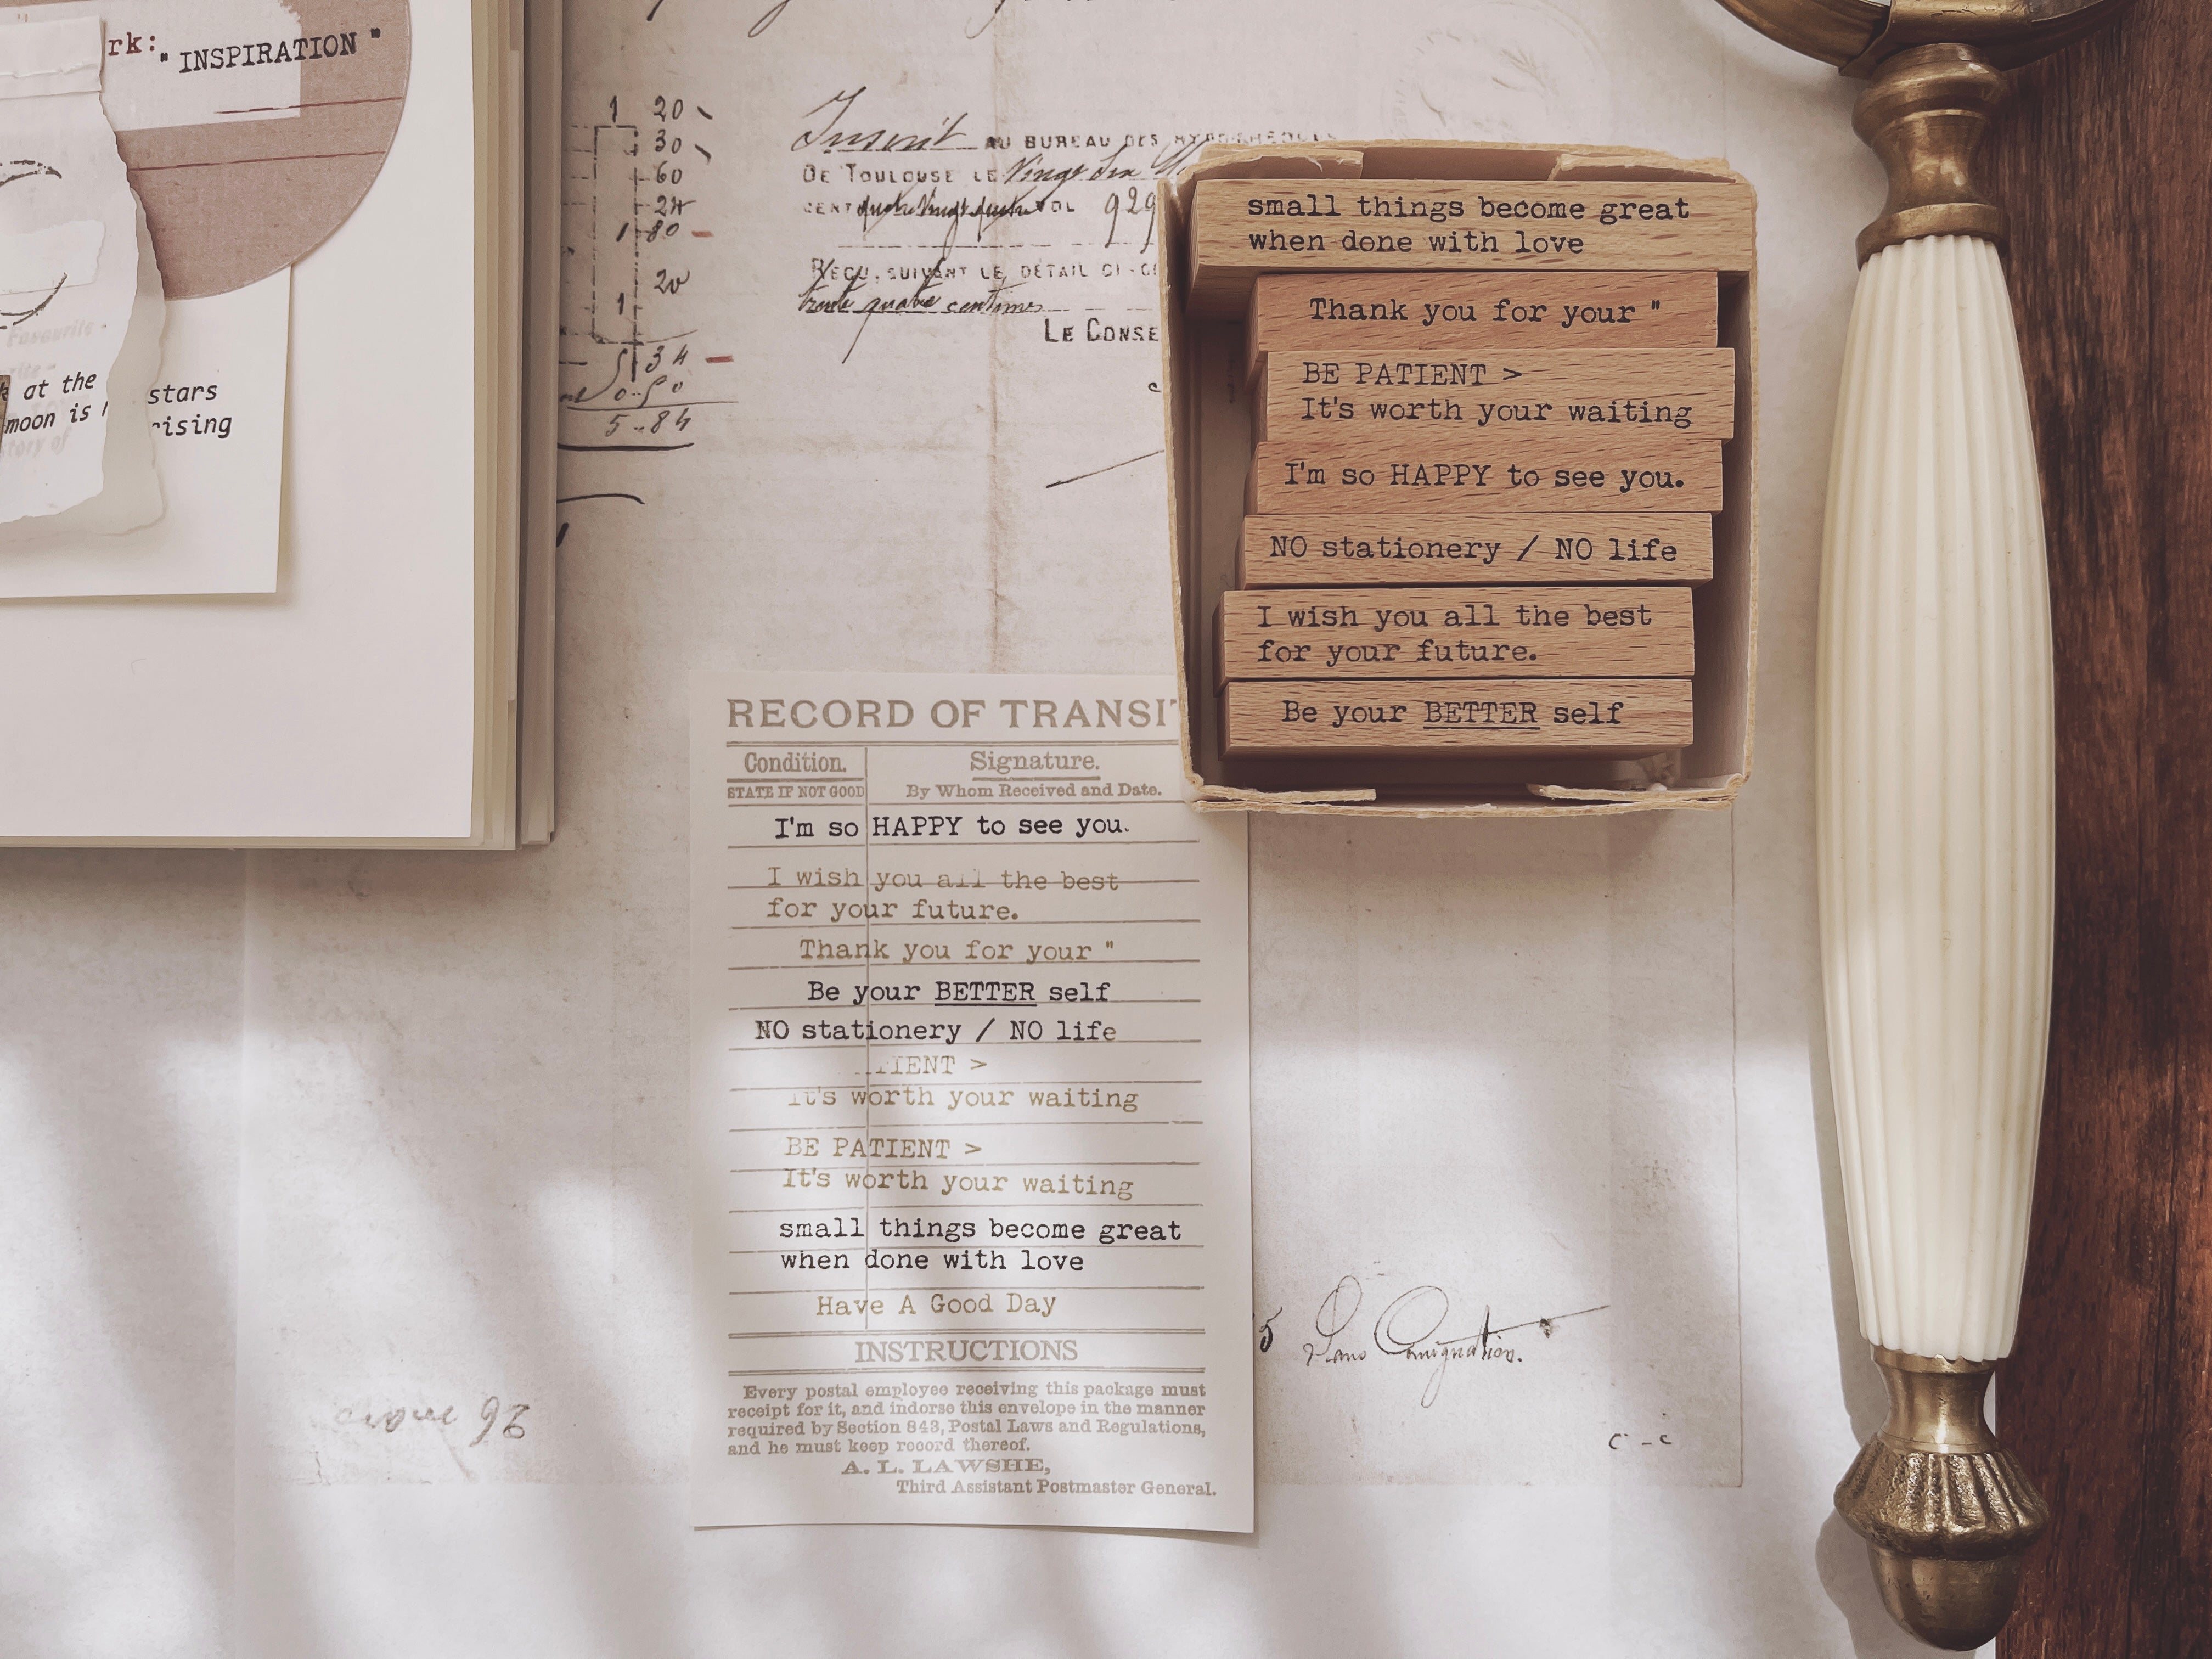 rk:
" INSPIRATION "
at the
stars
moon is
rising
1 20
30
60
24
1 80
20
1
34
0.50
5.84
Inscrit AU BUREAU DES HYPOTHÈQUES
DE TOULOUSE LE Vingt Six
CENT VOL 929
REÇU, SUIVANT LE DÉTAIL CI-C
trente quatre centimes
LE CONSE
small things become great
when done with love
Thank you for your "
BE PATIENT >
It's worth your waiting
I'm so HAPPY to see you.
NO stationery / NO life
I wish you all the best
for your future.
Be your BETTER self
RECORD OF TRANSIT
Condition. Signature.
STATE IF NOT GOOD By Whom Received and Date.
I'm so HAPPY to see you.
I wish you all the best
for your future.
Thank you for your "
Be your BETTER self
NO stationery / NO life
TIENT >
It's worth your waiting
BE PATIENT >
It's worth your waiting
small things become great
when done with love
Have A Good Day
INSTRUCTIONS
Every postal employee receiving this package must
receipt for it, and indorse this envelope in the manner
required by Section 843, Postal Laws and Regulations,
and he must keep record thereof.
A. L. LAWSHE,
Third Assistant Postmaster General.